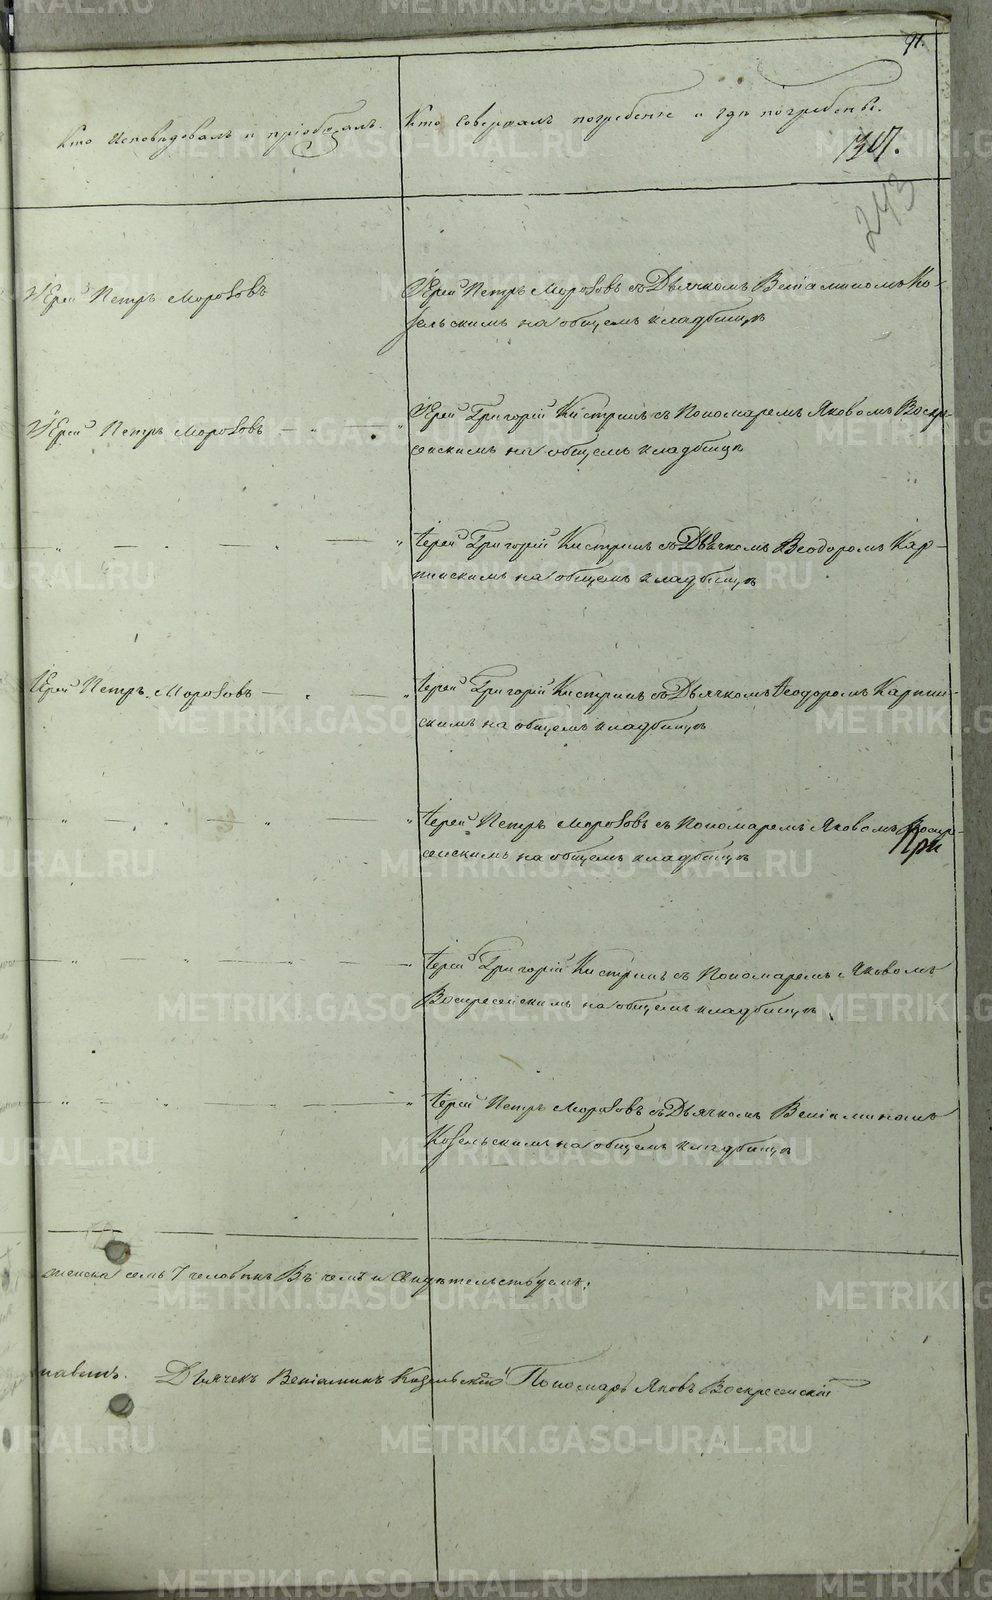 91.
Кто исповѣдовалъ и пріобщалъ.
Кто совершалъ погребеніе и гдѣ погребены.
243
Іерей Петръ Морозовъ
Іерей Петръ Морозовъ съ Дьячкомъ Веніаминомъ Ко-
зельскимъ на общемъ кладбищѣ
Іерей Петръ Морозовъ
Іерей Григорій Кистринъ съ Пономаремъ Яковомъ Воскре-
сенскимъ на общемъ кладбищѣ
Іерей Григорій Кистринъ съ Дьячкомъ Ѳеодоромъ Кар-
пинскимъ на общемъ кладбищѣ
Іерей Петръ Морозовъ
Іерей Григорій Кистринъ съ Дьячкомъ Ѳеодоромъ Карпин-
скимъ на общемъ кладбищѣ
Іерей Петръ Морозовъ съ Пономаремъ Яковомъ Воскре-
сенскимъ на общемъ кладбищѣ
При
Іерей Григорій Кистринъ съ Пономаремъ Яковомъ
Воскресенскимъ на общемъ кладбищѣ
Іерей Петръ Морозовъ съ Дьячкомъ Веніаминомъ
Козельскимъ на общемъ кладбищѣ
женска семь 7 человѣкъ Въ чемъ и свидѣтельствуемъ:
Дьячекъ Веніаминъ Козельскій Пономарь Яковъ Воскресенскій
METRIKI.GASO-URAL.RU